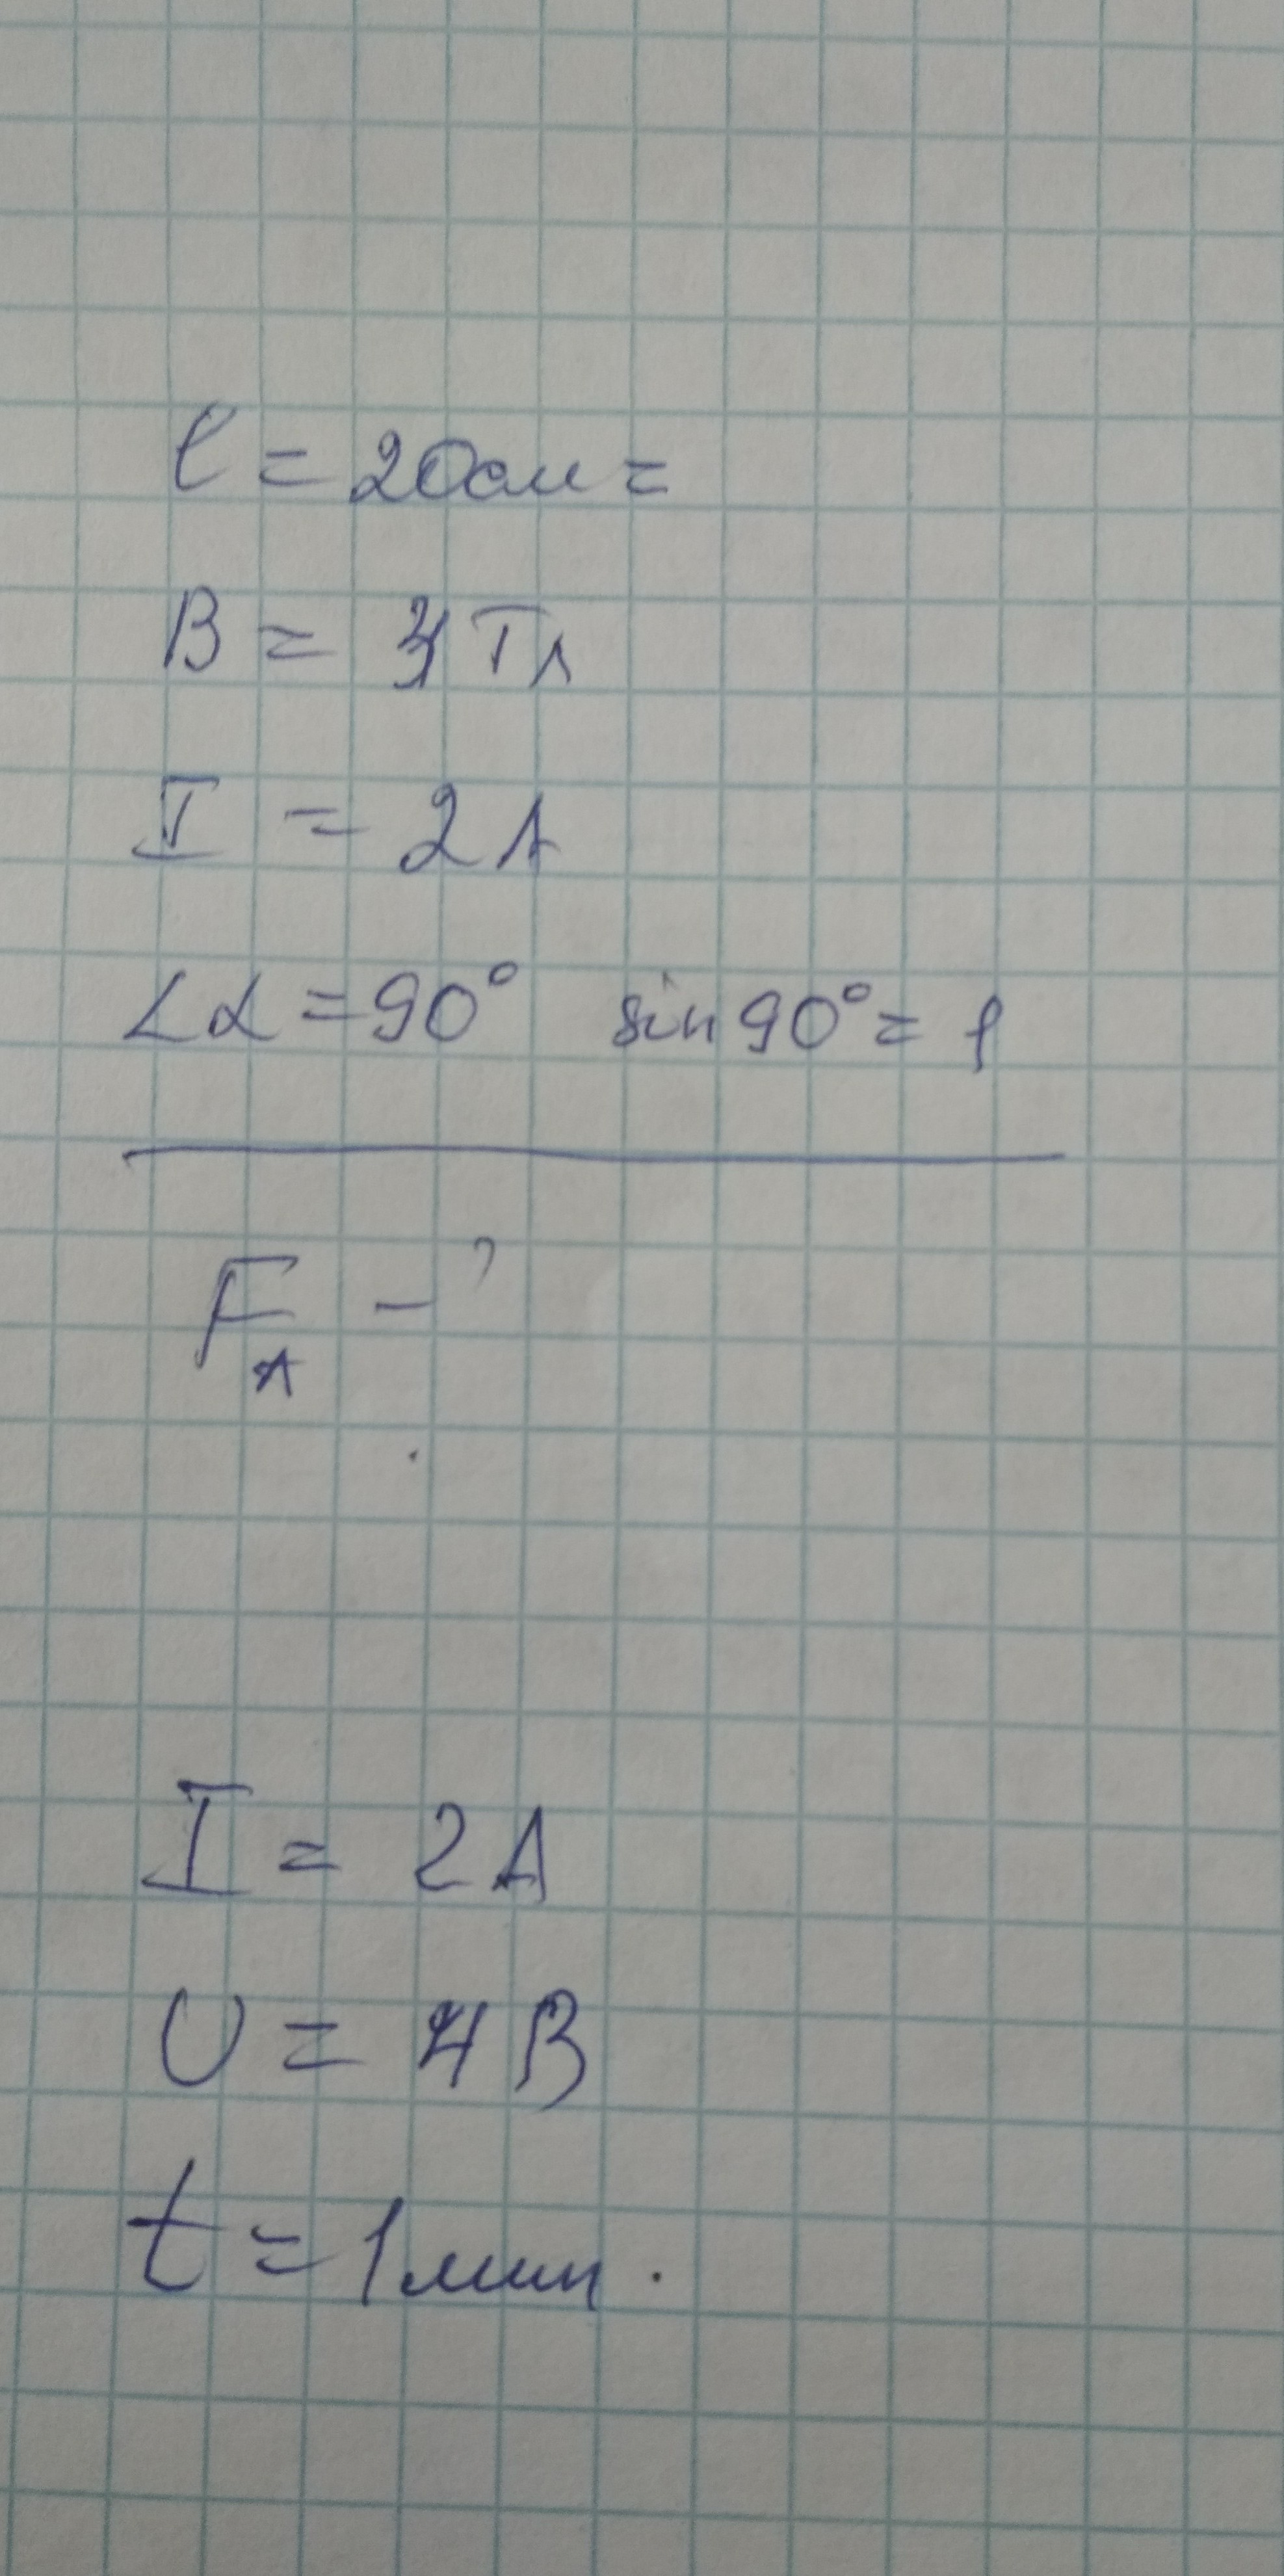 l = 20см =
B = 4 Тл
I = 2 А
∠α = 90° sin 90° = 1
F_A - ?
I = 2 А
U = 4 В
t = 1 мин.